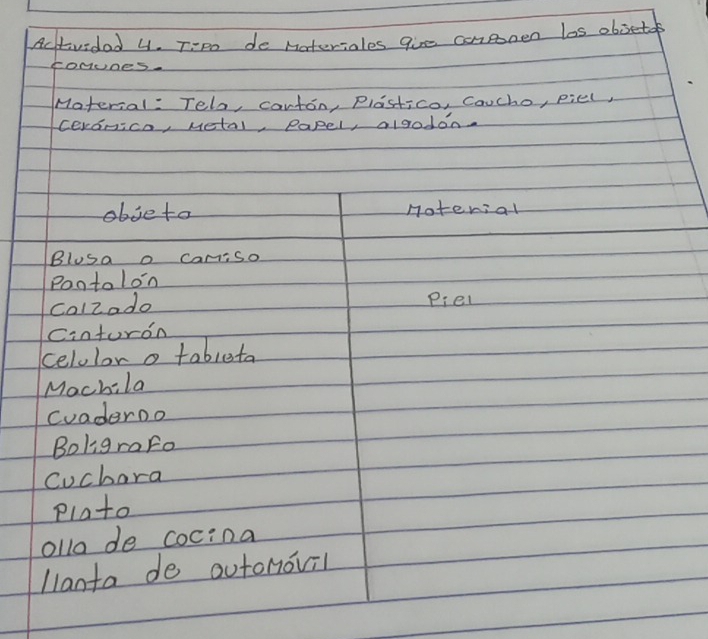 Actividad 4. Tipo de Materiales que componen los objetos
comunes.
Material: Tela, cartón, Plástico, Caucho, piel,
cerámica, Metal, Papel, algodón.
objeto Material
Blusa o camisa
Pantalón
Calzado Piel
Cinturón
Celular o tableta
Mochila
Cuaderno
Boligrafo
Cuchara
Plato
olla de cocina
llanta de automóvil